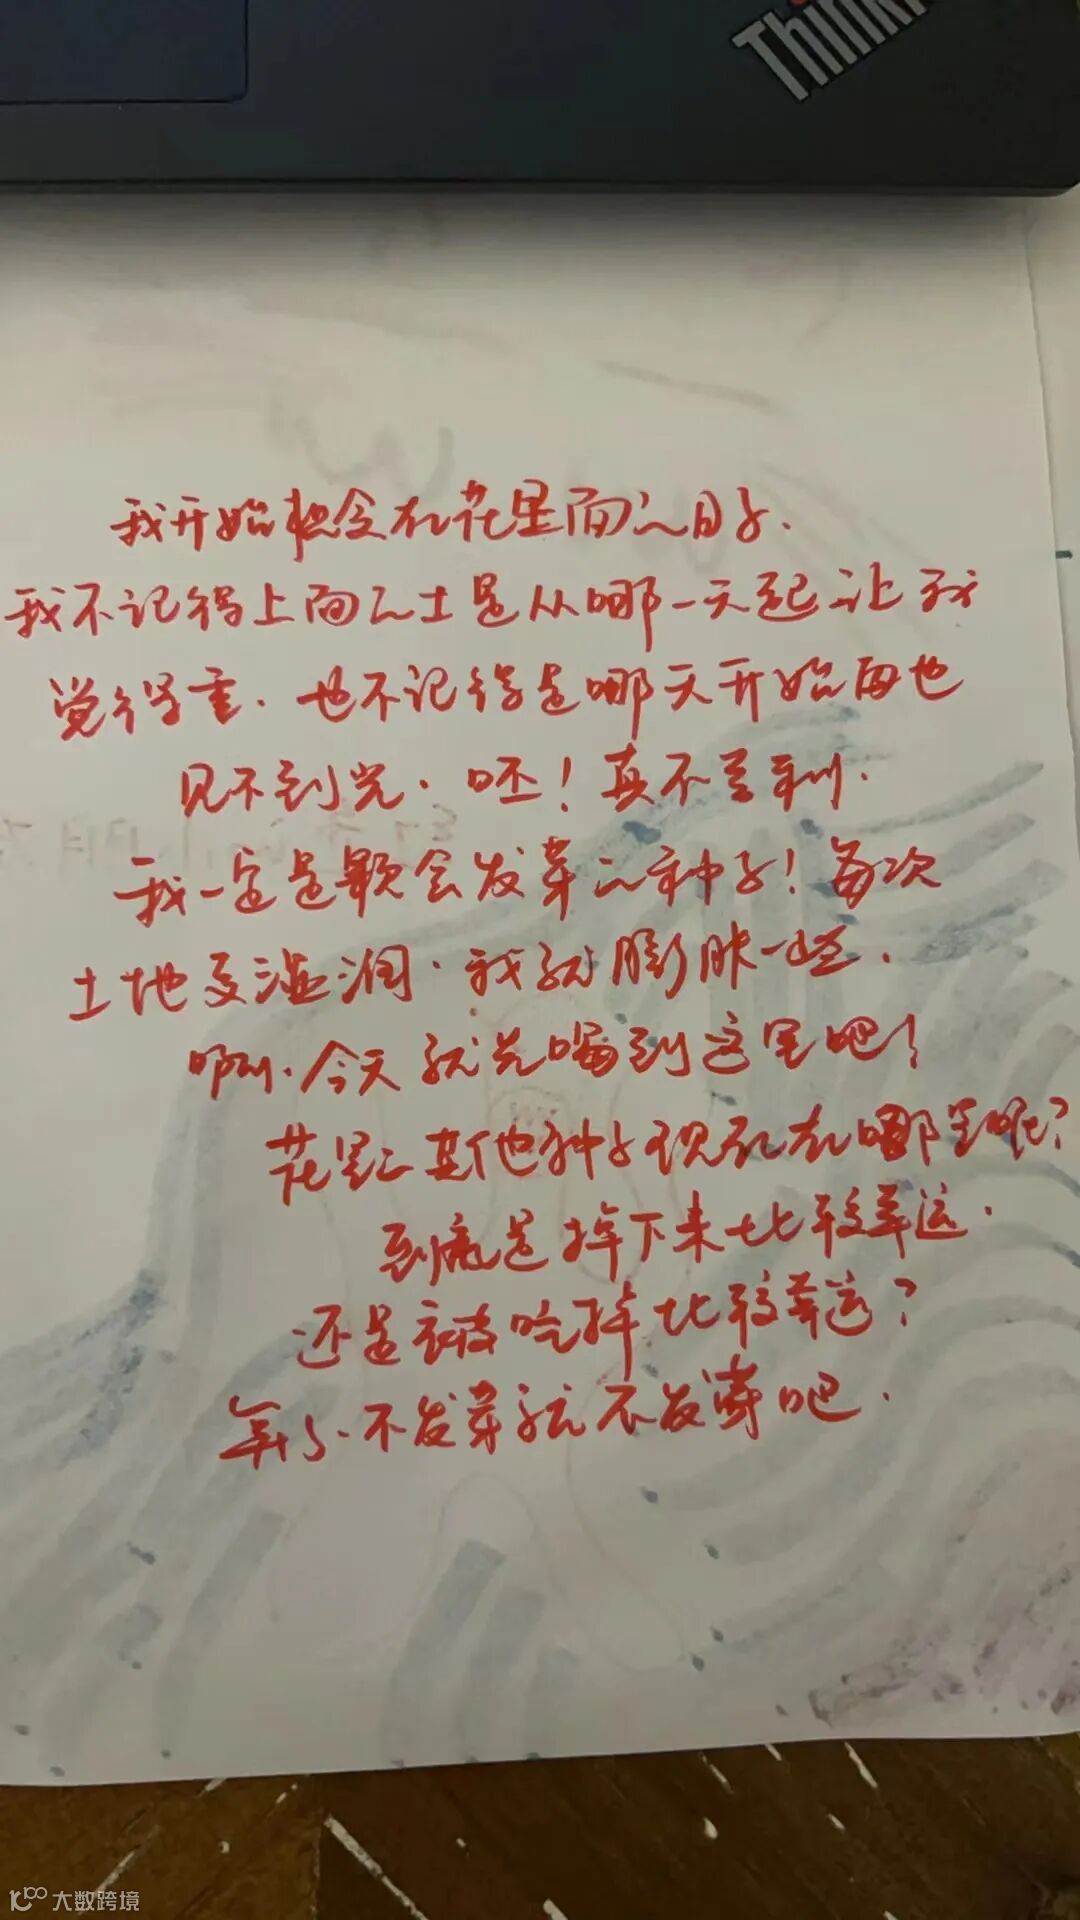 Think
我开始想念在花里面的日子.
我不记得上面的土是从哪一天起让我
觉得重.也不记得是哪天开始再也
见不到光.呸!真不吉利.
我一定是颗会发芽的种子!每次
土地变湿润.我就膨胀一些.
啊.今天就先喝到这里吧!
花里的其他种子现在在哪里呢?
到底是掉下来比较幸运.
还是被吃掉比较幸运?
算了.不发芽就不发芽吧.
大数跨境